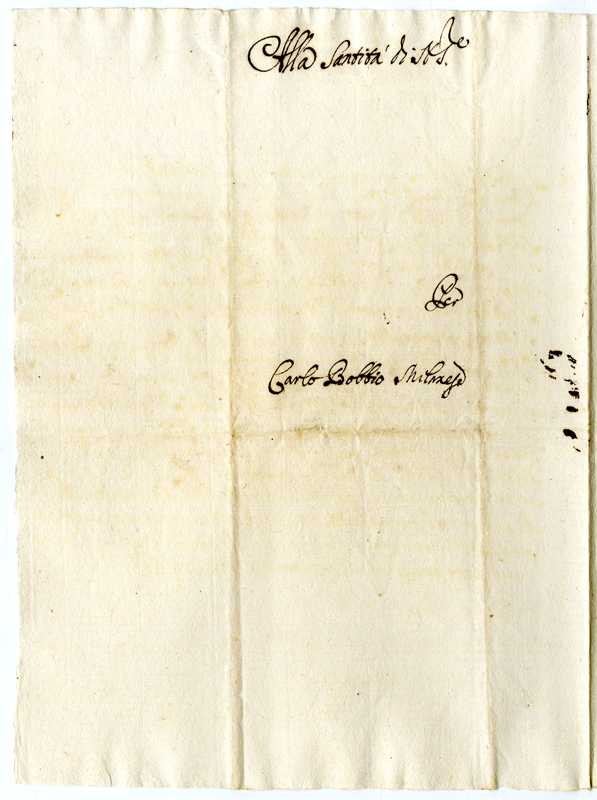 Alla Santità di N. S.re
Per
Carlo Bobbio Milanese